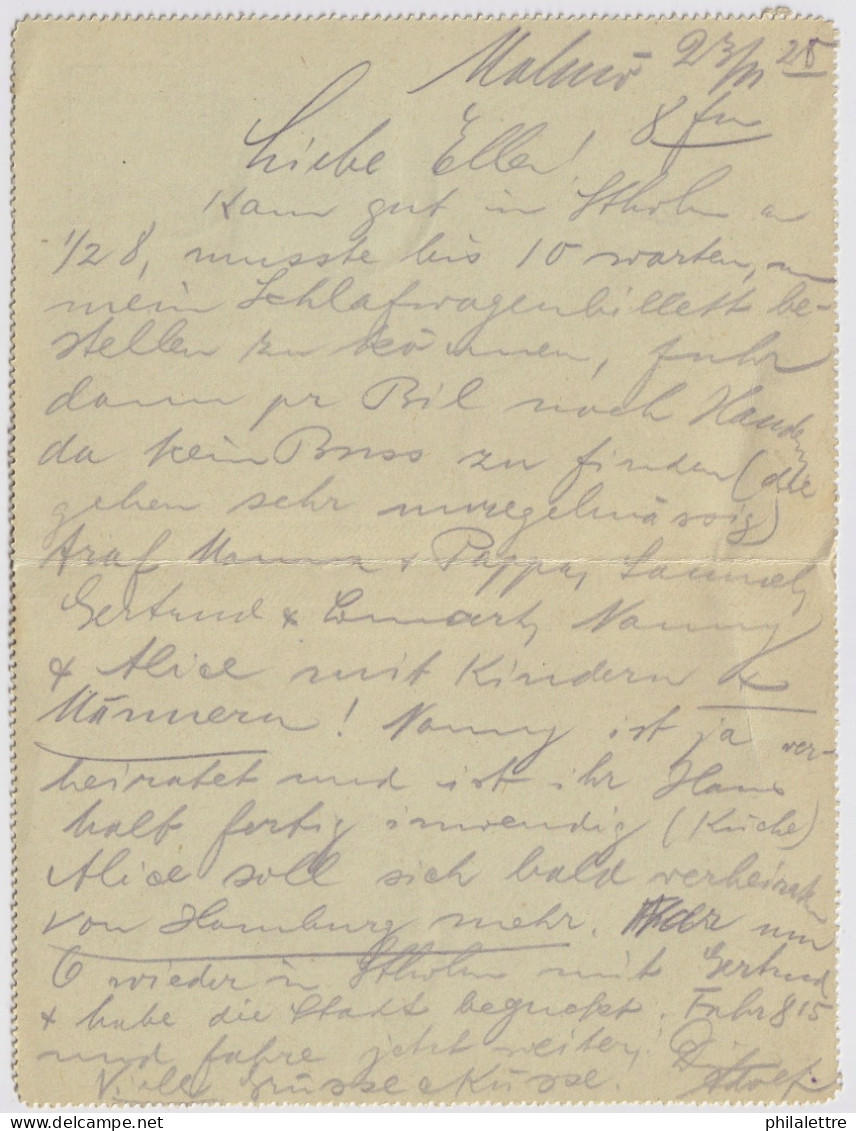 Malmö 23/VI 25
8 fm
Liebe Ellen!
Kam gut in Stholm an
1/2 8, musste bis 10 warten, um
mein Schlafwagenbillett be-
stellen zu können, fuhr
dann pr Bil nach
da kein Buss zu finden (die
gehen sehr unregelmässig)
Traf Mamma & Pappa,
Gertrud & Lennart, Nanny
& Alice mit Kindern &
Männern! Nanny ist ja ver-
heiratet und ist ihr Haus
halb fertig inwendig (Küche)
Alice soll sich bald verheiraten
von Hamburg mehr. um
6 wieder in Stholm mit Gertrud
& habe die Stadt beguckt. Fuhr 8 15
und fahre jetzt weiter!
Viele Grüsse & Küsse.
philalettre